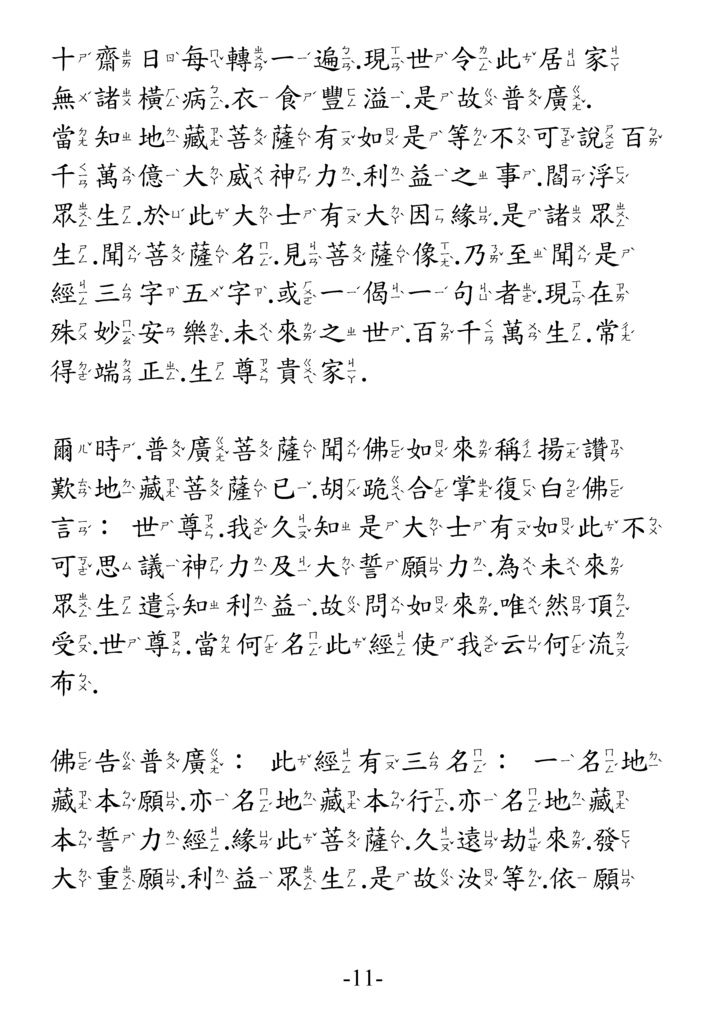 十齋日每轉一遍.現世令此居家
無諸橫病.衣食豐溢.是故普廣.
當知地藏菩薩有如是等不可說百
千萬億大威神力.利益之事.閻浮
眾生.於此大士有大因緣.是諸眾
生.聞菩薩名.見菩薩像.乃至聞是
經三字五字.或一偈一句者.現在
殊妙安樂.未來之世.百千萬生.常
得端正.生尊貴家.
爾時.普廣菩薩聞佛如來稱揚讚
歎地藏菩薩已.胡跪合掌復白佛
言：世尊.我久知是大士有如此不
可思議神力及大誓願力.為未來
眾生遣知利益.故問如來.唯然頂
受.世尊.當何名此經使我云何流
布.
佛告普廣：此經有三名：一名地
藏本願.亦名地藏本行.亦名地藏
本誓力經.緣此菩薩.久遠劫來.發
大重願.利益眾生.是故汝等.依願
-11-